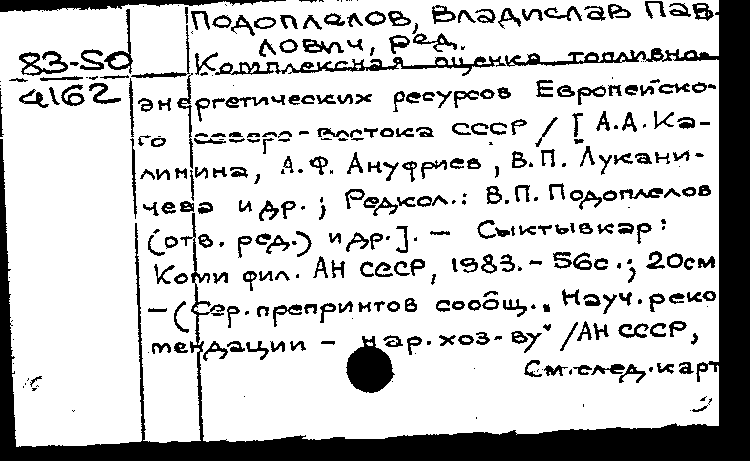 Подоплелов, Владислав Пав-
лович, ред.
83-50 Комплексная оценка топливно-
4162 энергетических ресурсов Европейско-
го северо-востока СССР / [А.А. Ка-
линина, А.Ф. Ануфриев, В.П. Лукани-
чева и др.; Редкол.: В.П. Подоплелов
(отв. ред.) и др.]. - Сыктывкар:
Коми фил. АН СССР, 1983. - 56с.; 20см
- (Сер. препринтов сообщ. "Науч. реко
мендации - нар. хоз-ву" / АН СССР,
См. след. карт